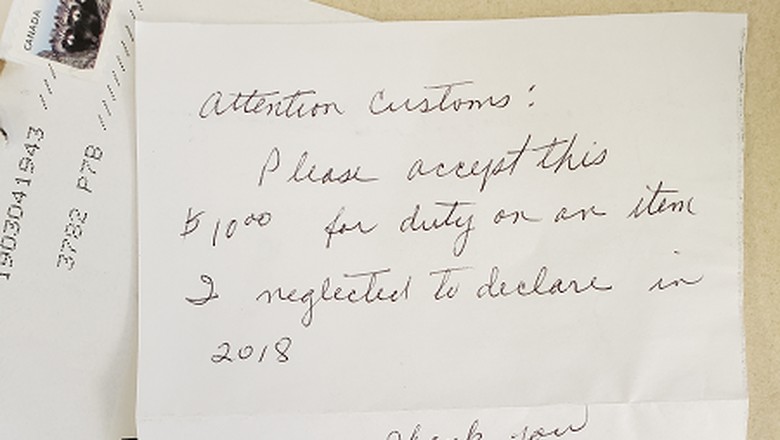 CANADA
1903041943
3782 P7B
Attention Customs:
Please accept this
$10⁰⁰ for duty on an item
I neglected to declare in
2018
Thank you